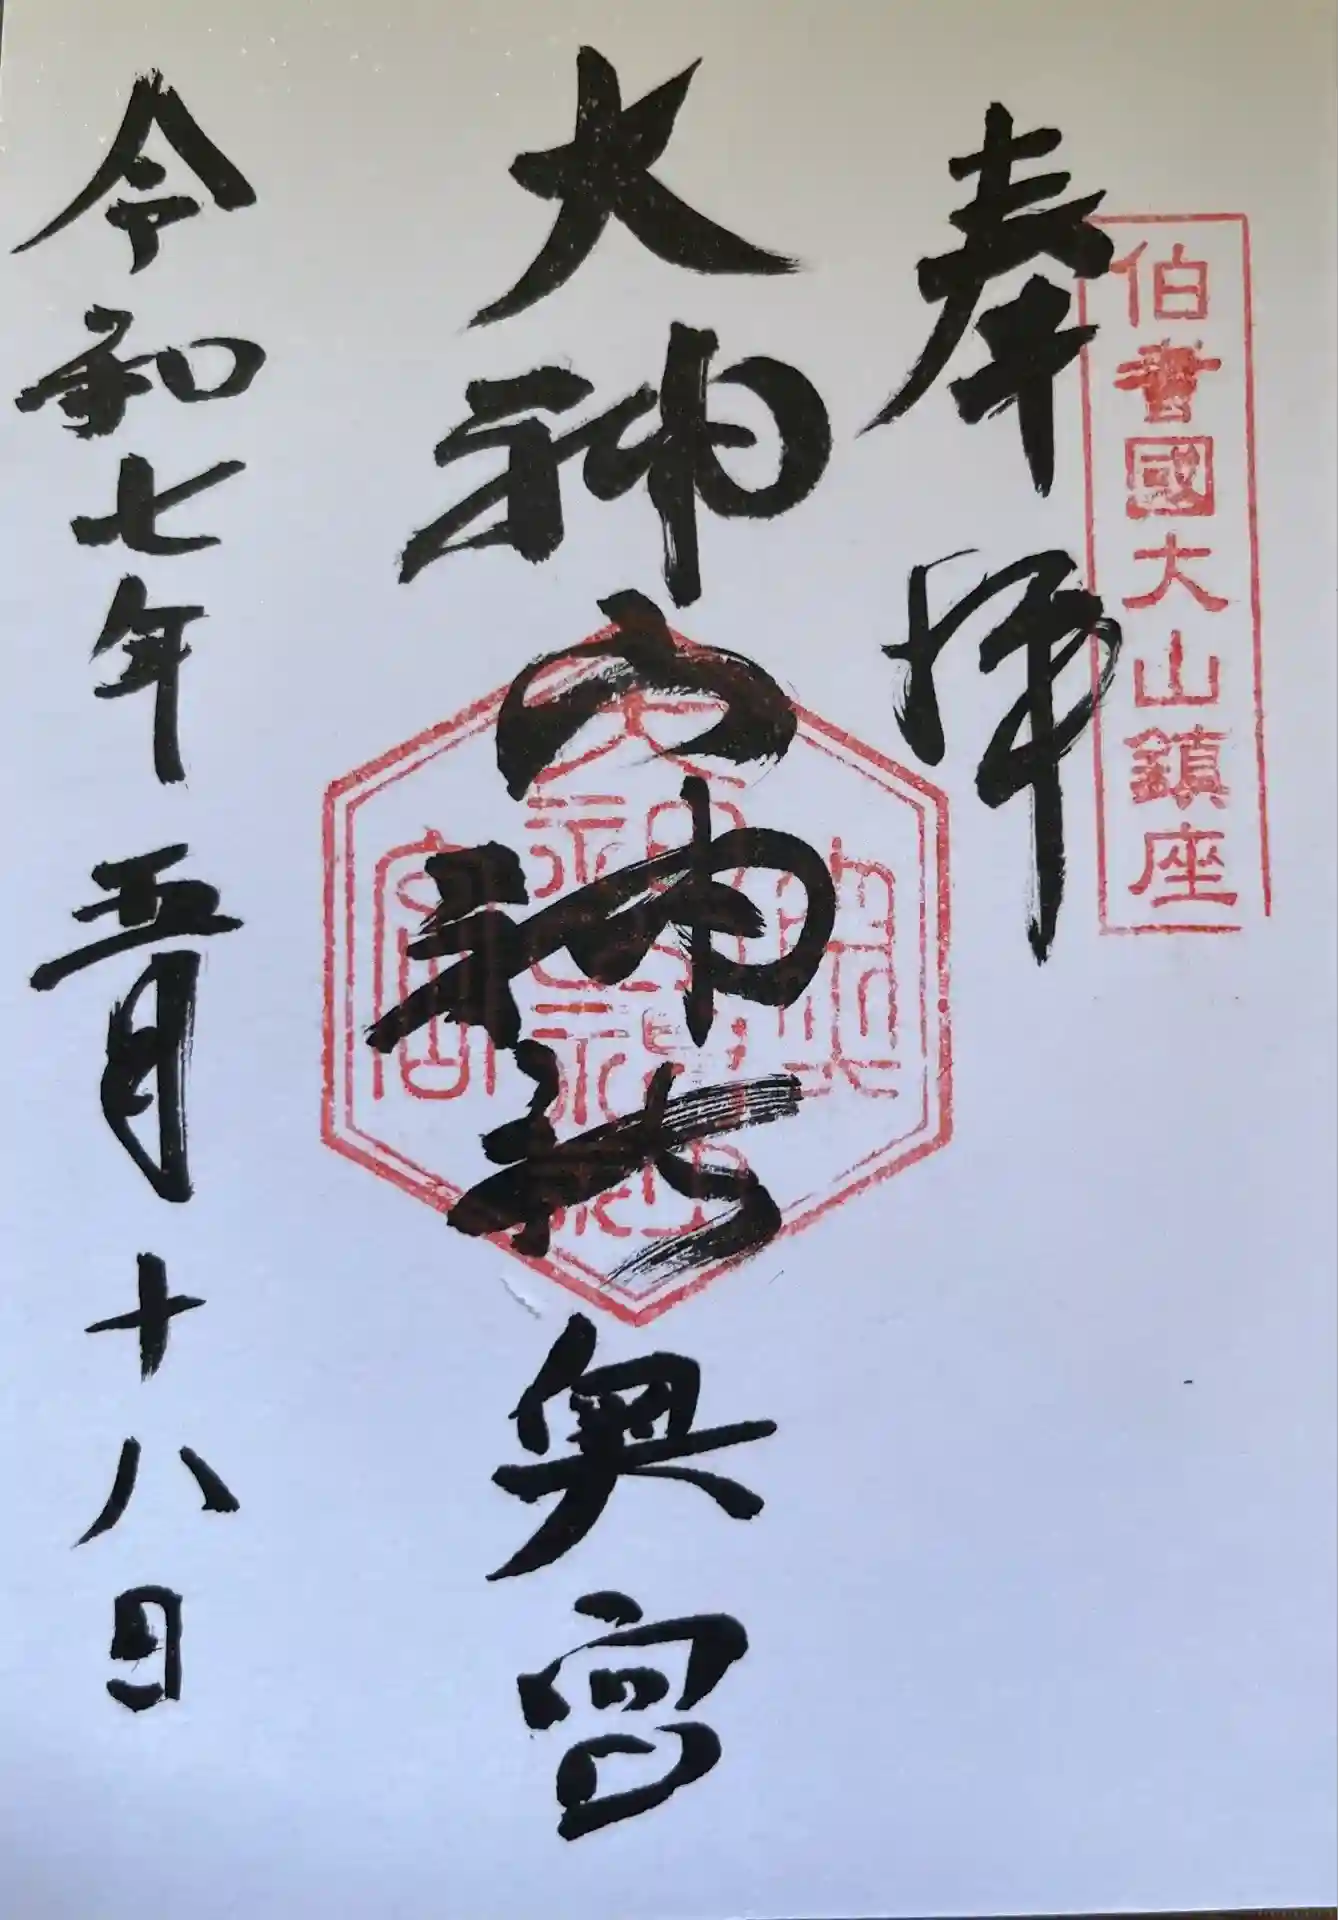 伯耆國大山鎮座
奉拝
大神山神社奥宮
奥宮
大神山神社
令和七年五月十八日